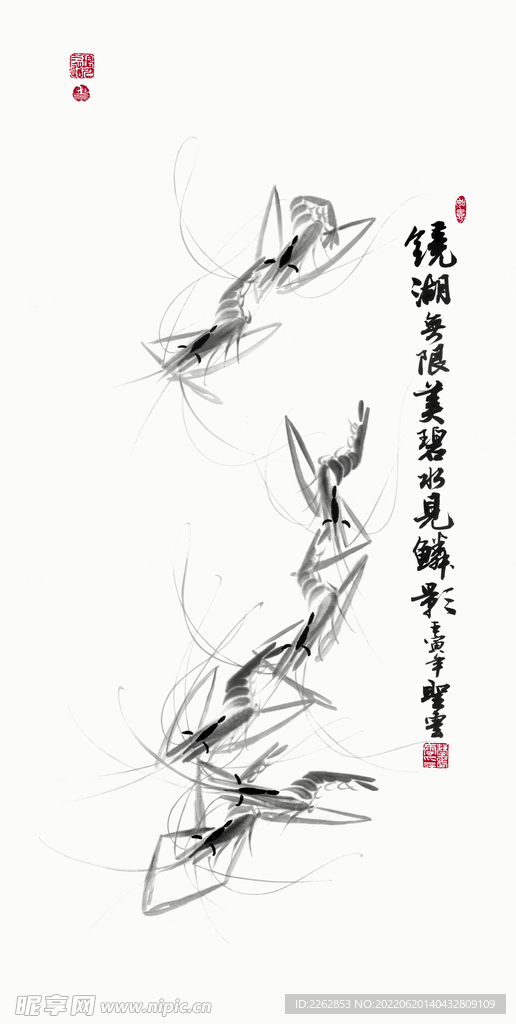 鏡湖無限美碧水見鱗影
壬寅年聖雲
昵享网 www.nipic.cn
ID:2262853 NO:20220620140432809109